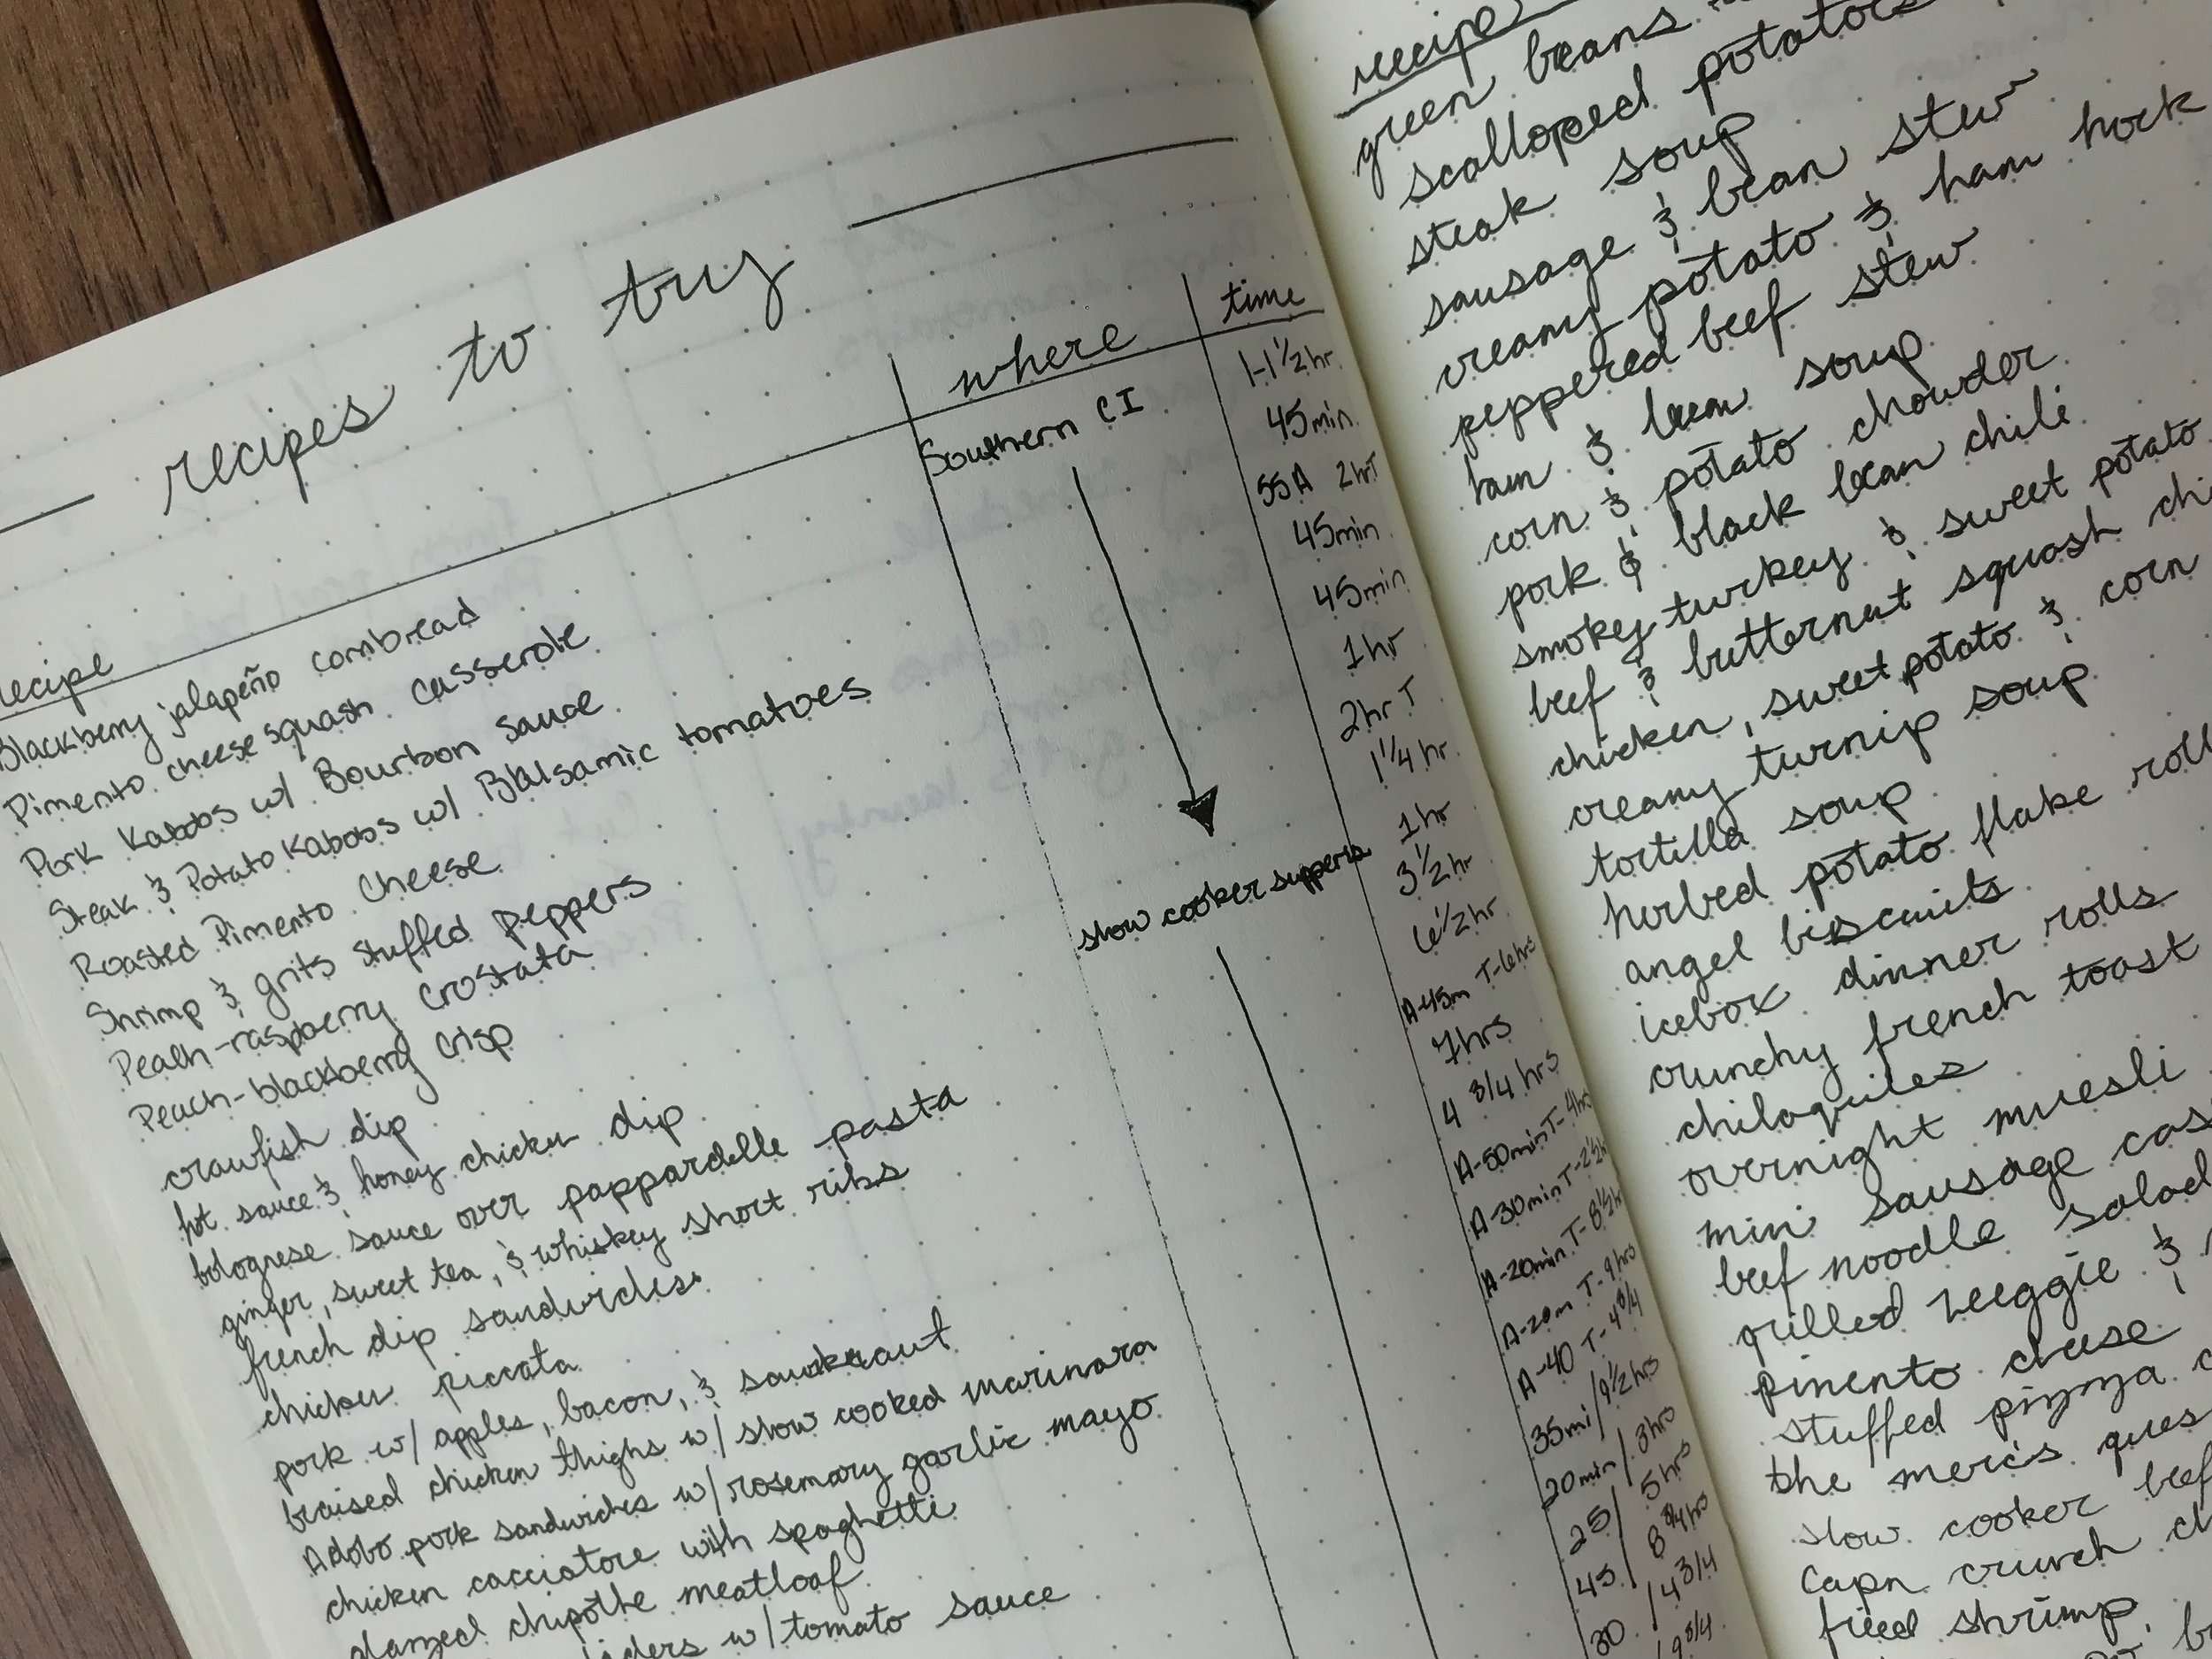 recipes to try
recipe where time
Blackberry jalapeño cornbread Southern CI 1-1½hr
Pimento cheese squash casserole 45min
Pork Kabobs w/ Bourbon sauce 55A 2hrT
Steak & Potato Kabobs w/ Balsamic tomatoes 45min
Roasted Pimento Cheese 45min
Shrimp & grits stuffed peppers 1hr
Peach-raspberry crostata 2hr T
Peach-blackberry crisp 1¼ hr
crawfish dip slow cooker suppers 1hr
hot sauce & honey chicken dip 3½hr
bolognese sauce over pappardelle pasta 6½hr
ginger, sweet tea, & whiskey short ribs A-45m T-6hrs
french dip sandwiches 7hrs
chicken piccata 4 3/4 hrs
pork w/ apples, bacon, & sauerkraut A-50min T-4hrs
braised chicken thighs w/ slow cooked marinara A-30min T-2½h
Adobo pork sandwiches w/ rosemary garlic mayo A-20min T-8½h
chicken cacciatore with spaghetti A-20m T-9hrs
glazed chipotle meatloaf A-40 T-4 3/4
w/ tomato sauce 35mi/9½hrs
20min/3hrs
25/5hrs
45/8 3/4hrs
30/4 3/4
/9 3/4
recipe
green beans
scalloped potatoes
steak soup
sausage & bean stew
creamy potato & ham hock
peppered beef stew
ham & bean soup
corn & potato chowder
pork & black bean chili
smokey turkey & sweet potato
beef & butternut squash chi
chicken, sweet potato & corn
creamy turnip soup
tortilla soup
herbed potato flake roll
angel biscuits
icebox dinner rolls
crunchy french toast
chilaquiles
overnight muesli
mini sausage cas
beef noodle salad
grilled veggie &
pimento cheese
stuffed pizza
the merc's ques
slow cooker beef
Capn crunch ch
fried shrimp